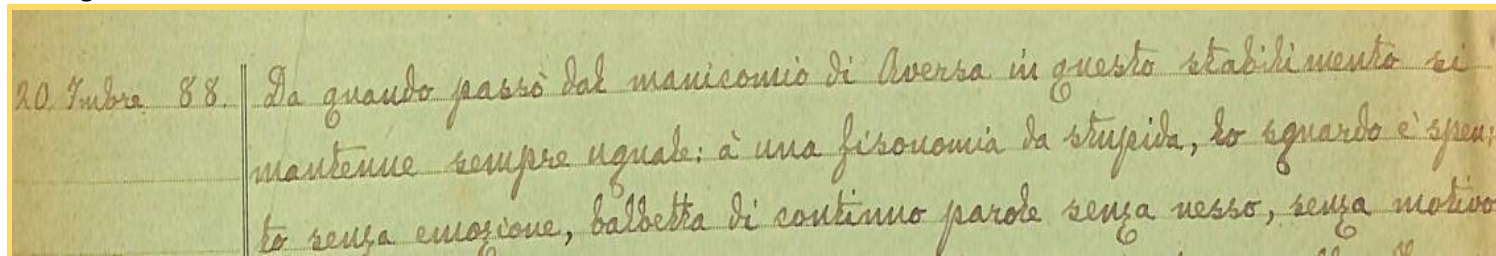 20. 7mbre 88. Da quando passò dal manicomio di Aversa in questo stabilimento si
mantenne sempre uguale: à una fisonomia da stupida, lo sguardo è spen:
to senza emozione, balbetta di continuo parole senza nesso, senza motivo